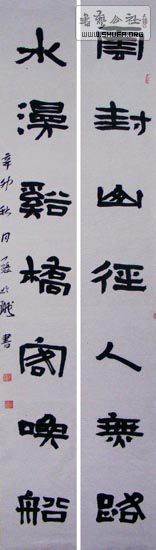 书艺公社
WWW.SHUFA.ORG
雲封山徑人無路
水漫谿橋客喚船
辛卯秋月 書